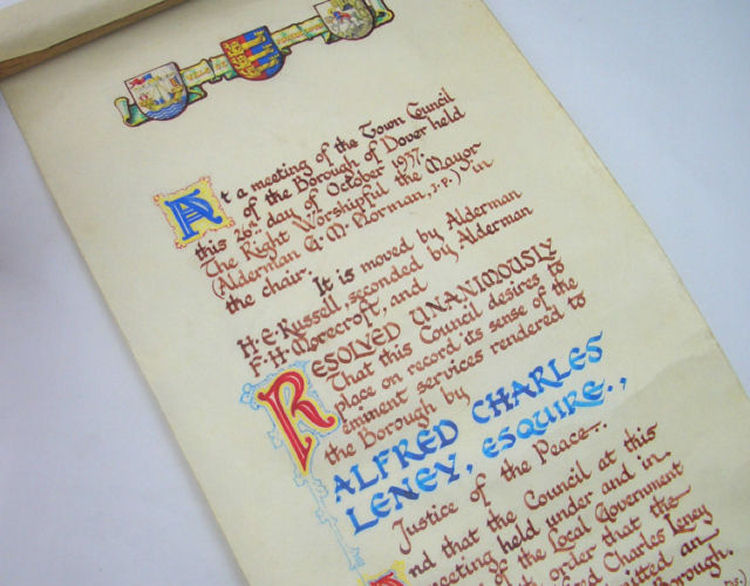 At a meeting of the Town Council
of the Borough of Dover held
this 26th day of October 1937.
The Right Worshipful the Mayor
(Alderman G. M. Norman, J.P.) in
the chair.
It is moved by Alderman
H. E. Russell, seconded by Alderman
F. H. Morecroft, and
RESOLVED UNANIMOUSLY
That this Council desires to
place on record its sense of the
eminent services rendered to
the Borough by
ALFRED CHARLES
LENEY, ESQUIRE.,
Justice of the Peace.
And that the Council at this
meeting held under and in
of the Local Government
order that the
Charles Leney
an